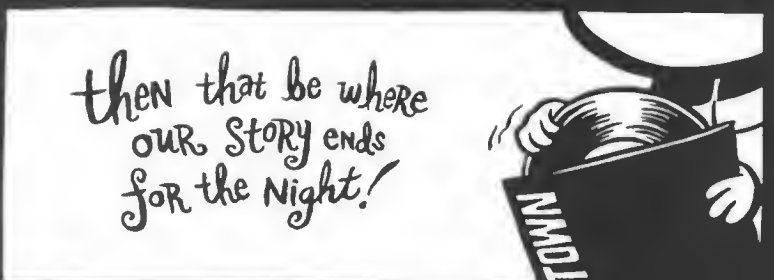 then that be where
OUR StoRy ends
foR the Night!